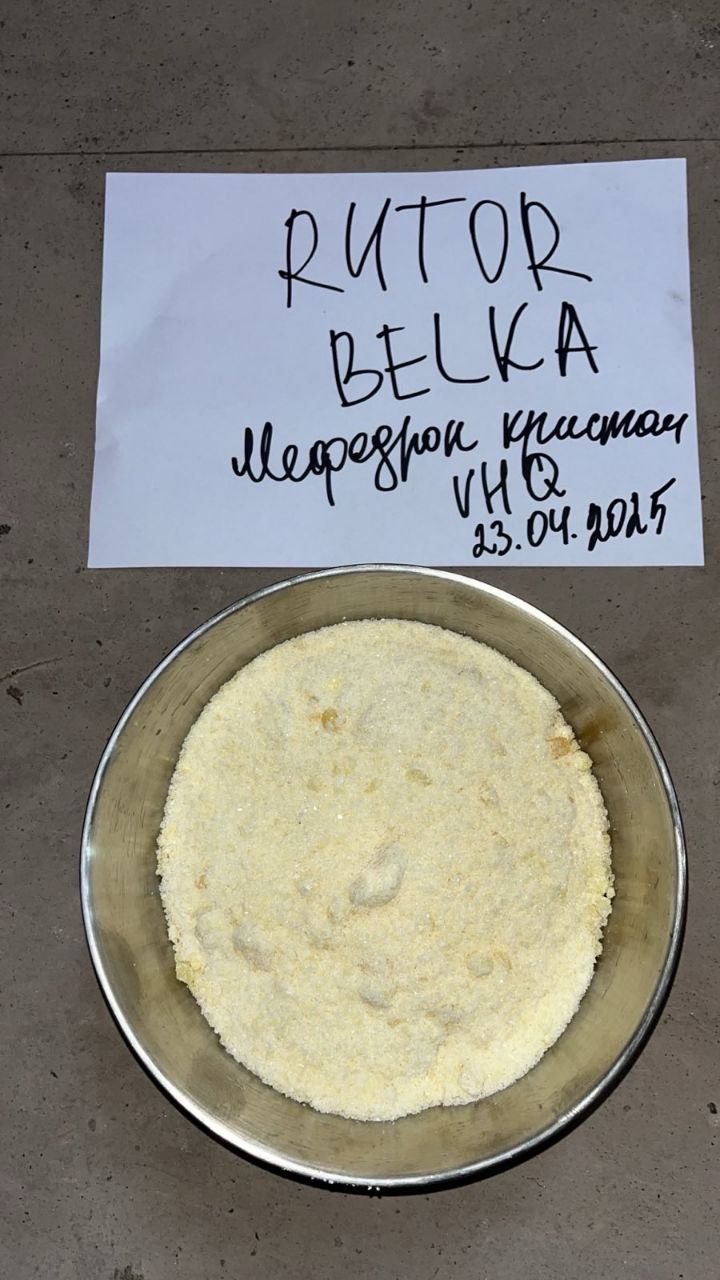 RUTOR
BELKA
Мефедрон кристал
VHQ
23.04.2025